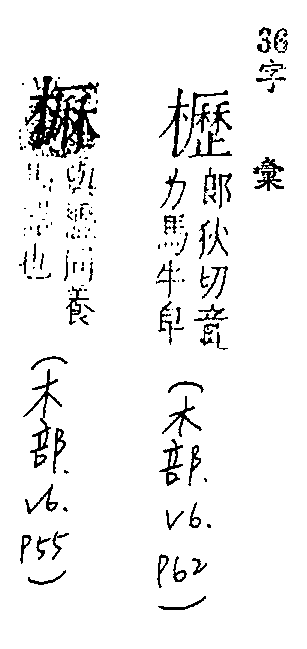 36字 彙
櫪
郎狄切音
力馬牛皁
(木部. V6. P62)
同養
也
(木部. V6. P55)